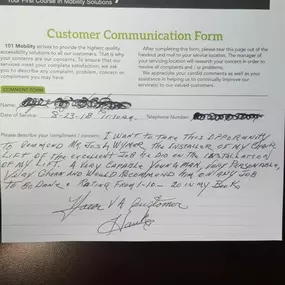 Your First Course in Mobility Solutions
Customer Communication Form
101 Mobility strives to provide the highest quality
accessibility solutions to all our customers. That is why
your concerns are our concerns. To ensure that our
services meet your complete satisfaction, we ask
you to describe any complaint, problem, concern or
compliment you may have.
After completing this form, please tear this page out of the
handout and mail to your service location. The manager of
your servicing location will research your concern in order to
resolve all complaints and / or problems.
We appreciate your candid comments as well as your
assistance in helping us to continually improve our
service(s) to our valued customers.
COMMENT FORM
Name:
Date of Service: 8-23-18
Telephone Number:
Please describe your compliment / concern: I WANT TO TAKE THIS OPPORTUNITY
TO COMMEND MR. JOSH WYMER THE INSTALLER OF MY CHAIR
LIFT OF THE EXCELLENT JOB HE DID ON THE INSTALLATION
OF MY LIFT. A VERY CAPABLE YOUNG MAN, VERY PERSONABLE,
VERY CLEAN AND WOULD RECOMMEND HIM ON ANY JOB
TO BE DONE. RATING FROM 1-10- 20 IN MY BOOK.
VA Customer
Thanks